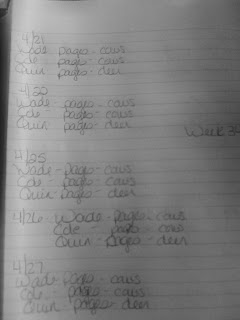 4/21
Wade - pages - caws
Cole - pages - caws
Quin - pages - deer
4/22
Wade - pages - caws
Cole - pages - caws
Quin - pages - deer
Week 34
4/25
Wade - pages - caws
Cole - pages - caws
Quin - pages - deer
4/26 - Wade - pages - caws
Cole - pages - caws
Quin - pages - deer
4/27
Wade - pages - caws
Cole - pages - caws
Quin - pages - deer